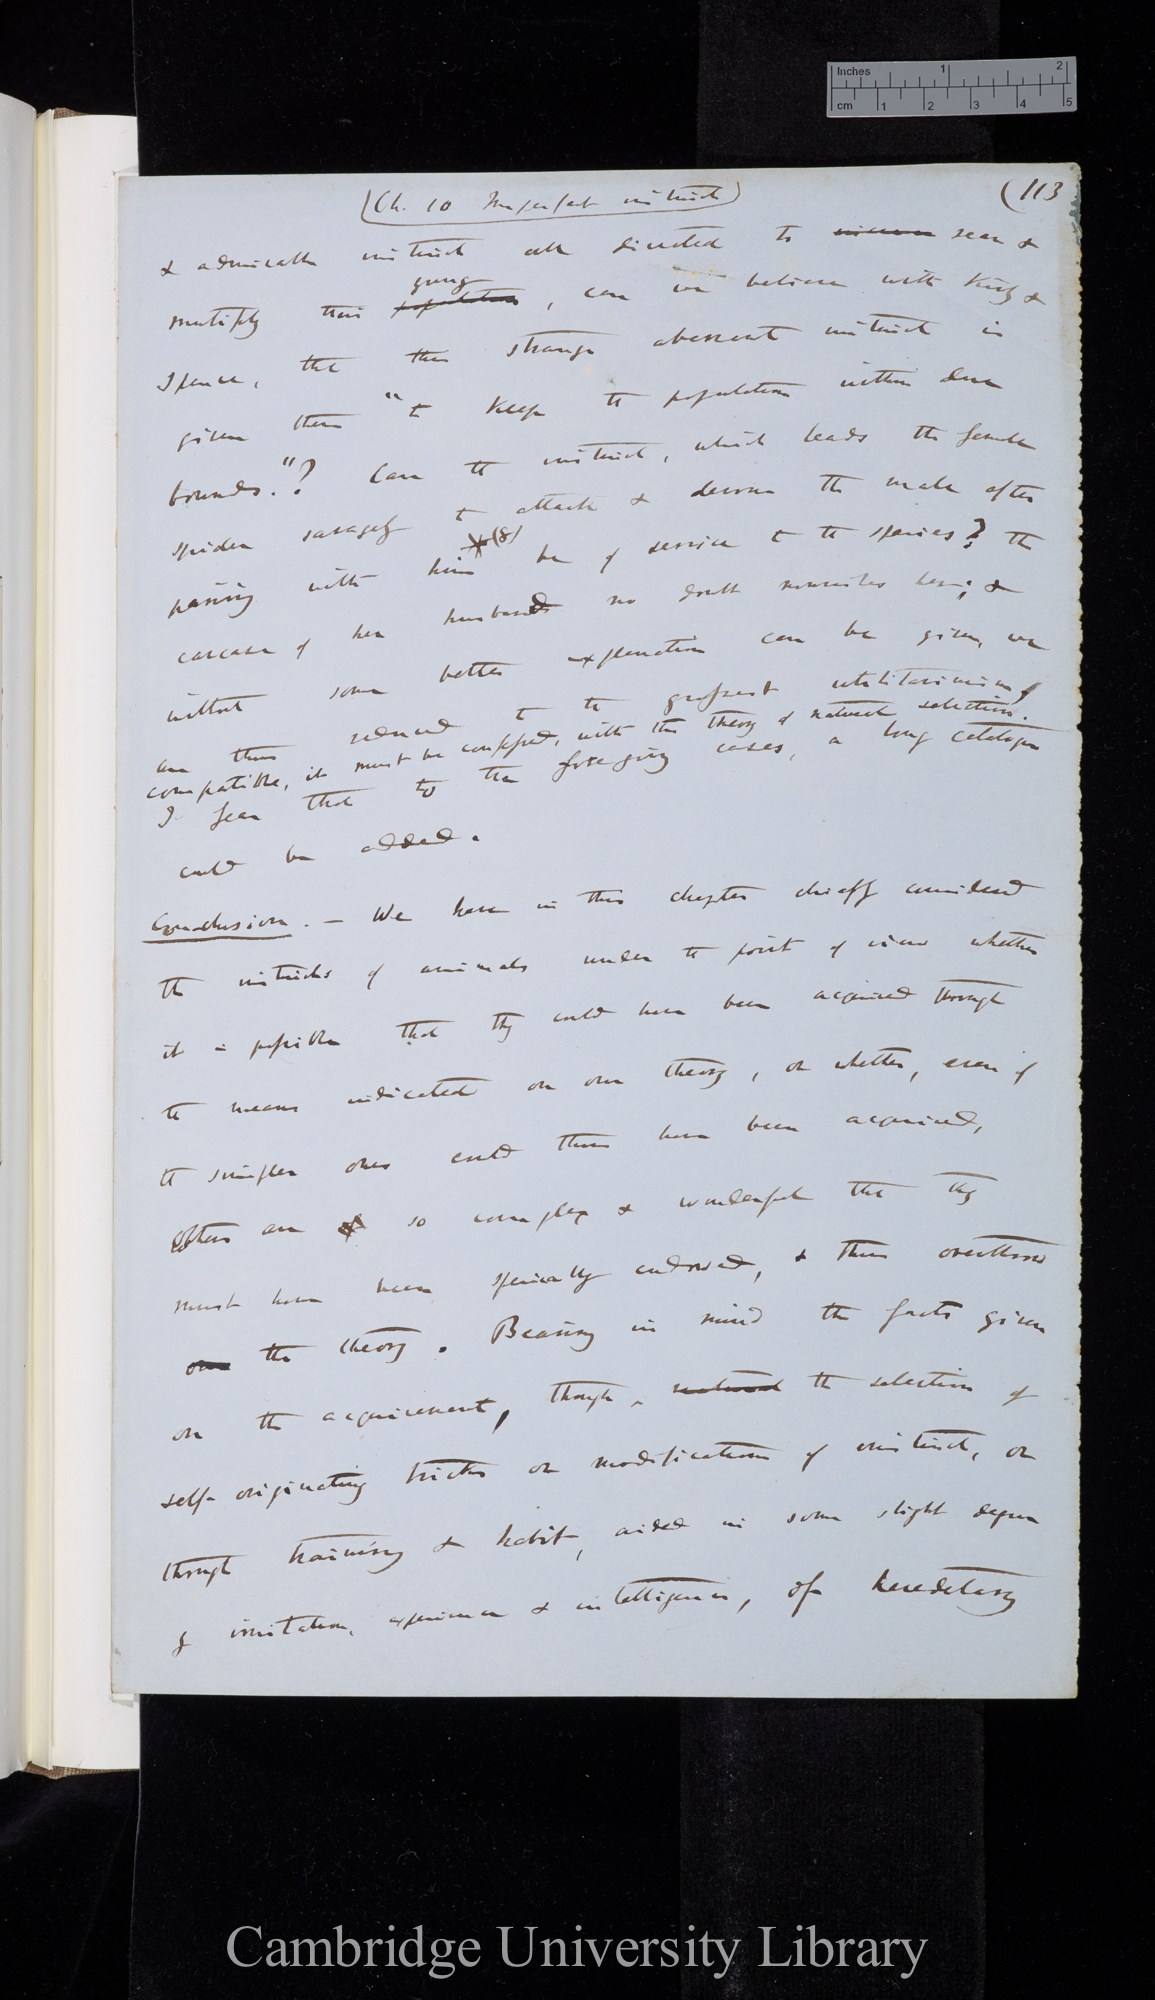 Inches 1 2
cm 1 2 3 4 5
(Ch. 10 Imperfect instinct)
(113
& admirable instinct all directed to rear &
young
multiply their population, can we believe with Kirby &
Spence, that this strange aberrant instinct is
given them "to keep the population within due
bounds."? Can the instinct, which leads the female
spider savagely to attack & devour the male after
*(8)
pairing with him be of service to the species? The
carcase of her husband no doubt nourishes her; &
without some better explanation can be given, we
are thus reduced to the grossest utilitarianism,
compatible, it must be confessed, with the theory of natural selection.
I fear that to the foregoing cases, a long catalogue
could be added.
Conclusion. — We have in this chapter chiefly considered
the instincts of animals under the point of view whether
it is possible that they could have been acquired through
the means indicated on our theory, or whether, even if
the simpler ones could thus have been acquired,
others are of so complex & wonderful that they
must have been specially endowed, & thus overthrow
our the theory. Bearing in mind the facts given
on the acquirement, through natural the selection of
self-originating tricks or modifications of instinct, or
through training & habit, aided in some slight degree
by imitation, experience & intelligence, of hereditary
Cambridge University Library